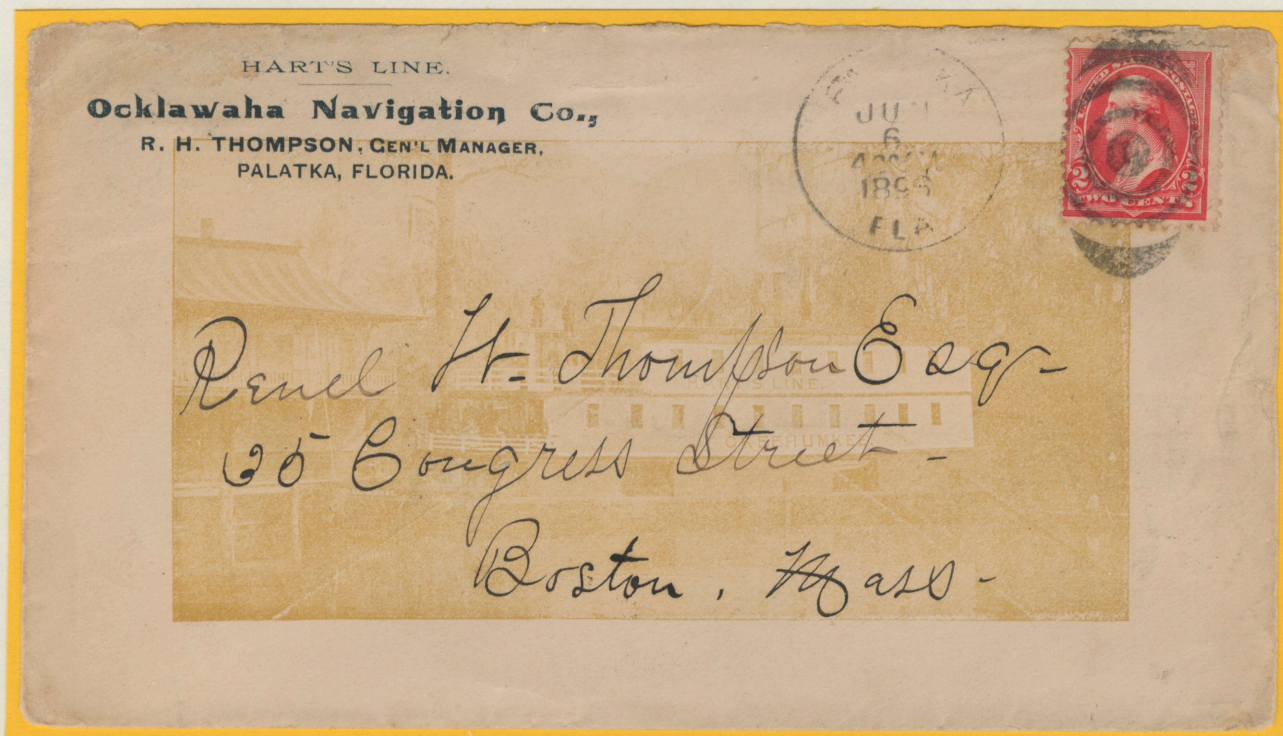 HART'S LINE.
Ocklawaha Navigation Co.,
R. H. THOMPSON, GEN'L MANAGER,
PALATKA, FLORIDA.
JUN
6
1896
FLA
UNITED STATES POSTAGE
2 2
TWO CENTS
LINE.
Renel W. Thompson Esq-
25 Congress Street-
Boston, Mass-